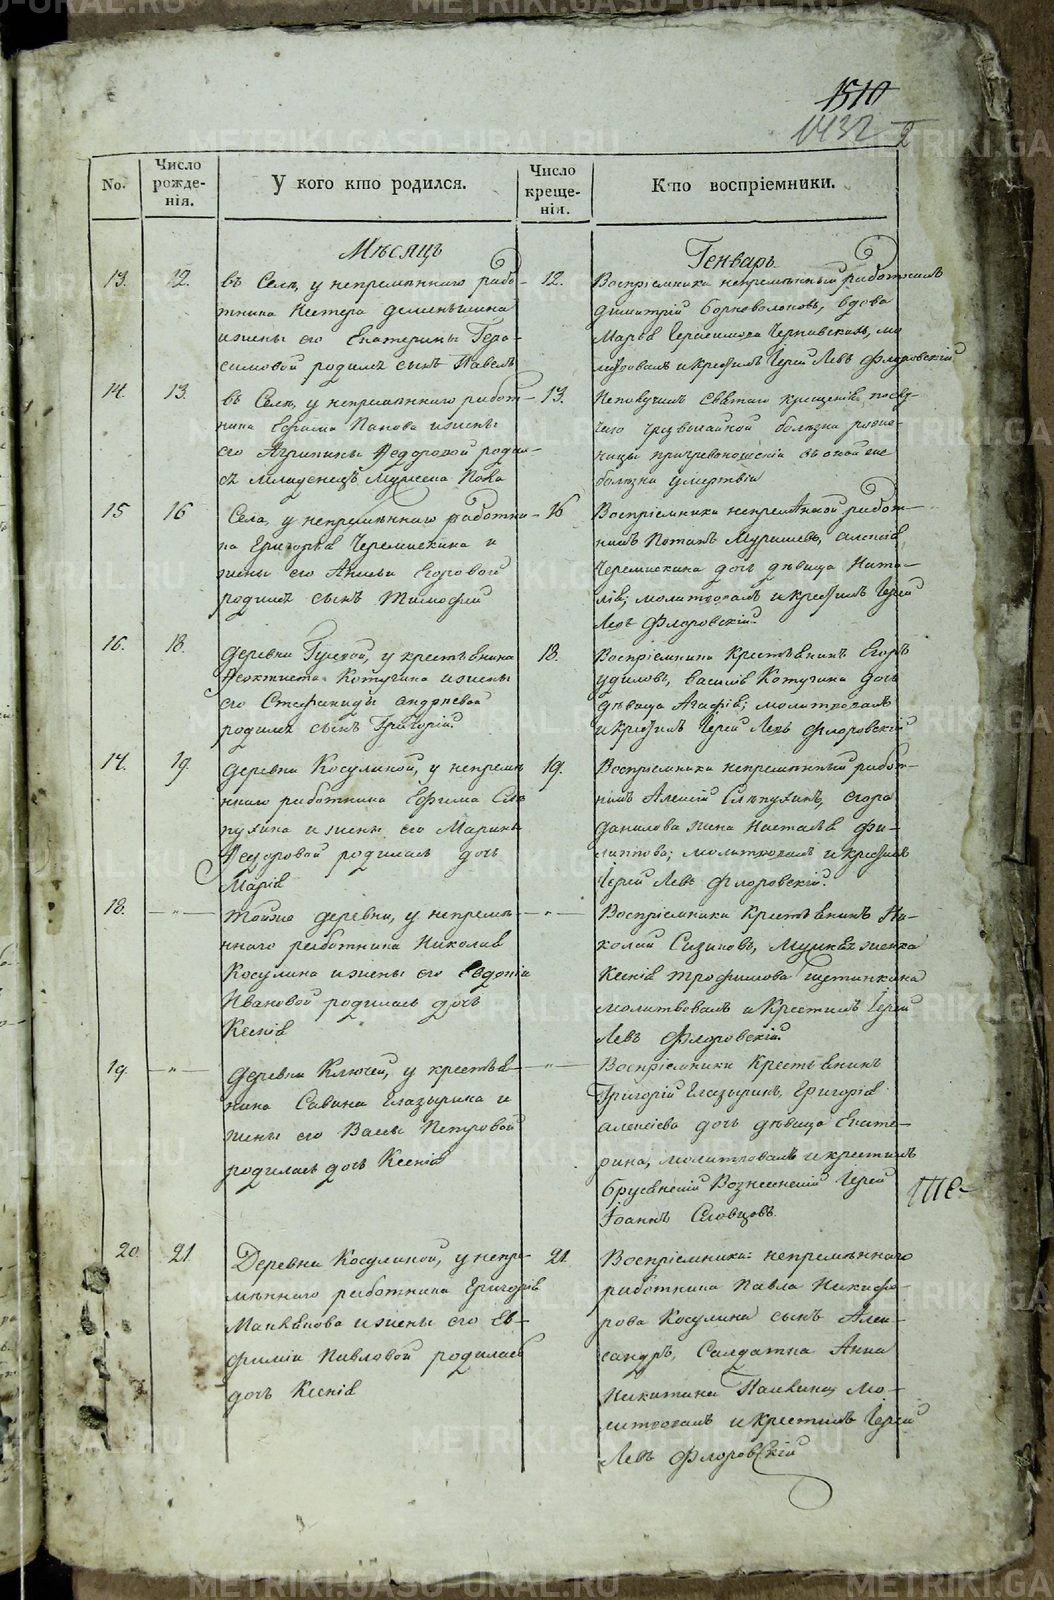 1510
1432
2
No.
Число рожде-нія.
У кого кто родился.
Число креще-нія.
Кто воспріемники.
Мѣсяцъ
Генварь
13.
12.
въ Селѣ, у непремѣннаго рабо-
тника Нестера
и жены его Екатерины Гера-
симовой родился сынъ Павелъ
12.
Воспріемники непремѣнный работникъ
Димитрій вдова
Марѳа Герасимова мо-
литвовалъ и крестилъ Іерей Левъ Флоровскій
14.
13.
въ Селѣ, у непремѣннаго работ-
ника Ефима Панова и жены
его Агрипины Ѳедоровой родил-
ся младенецъ мужеска пола
13.
Неполучилъ святаго крещенія по слу-
чаю чрезвычайной болѣзни
болѣзни
15
16
Села, у непремѣннаго работни-
ка Григорія Черемискина и
жены его Егоровой
родился сынъ Тимофей
16
Воспріемники непремѣнной работ-
никъ Потапъ Алексія
Черемискина дочь дѣвица Ната-
лія; молитвовалъ и крестилъ Іерей
Левъ Флоровскій.
16.
18.
деревни у крестьянина
Ѳеоктиста Котугина и жены
его Стефаниды Андреевой
родился сынъ Григорій
18.
Воспріемники Крестьянинъ Егоръ
Удиловъ, Василія Котугина дочь
дѣвица Агафія; молитвовалъ
и крестилъ Іерей Левъ Флоровскій
17.
19.
деревни Косулиной, у непремѣ-
ннаго работника Ефима Слѣ-
пухина и жены его Марины
Ѳедоровой родилась дочь
Марія
19.
Воспріемники непремѣнный работ-
никъ Алексій Слѣпухинъ, Егора
Данилова жена Наталья Фи-
липпова; молитвовалъ и крестилъ
Іерей Левъ Флоровскій.
18.
— „ —
тойже деревни, у непремѣ-
ннаго работника Николая
Косулина и жены его Евдокіи
Ивановой родилась дочь
Ксенія
— „ —
Воспріемники Крестьянинъ Ни-
колай Сизиковъ, женка
Ксенія Трофимова Щетинкина
молитвовалъ и Крестилъ Іерей
Левъ Флоровскій.
19.
— „ —
деревни Ключей, у крестья-
нина Савина Глазырина и
жены его Вассы Петровой
родилась дочь Ксенія
— „ —
Воспріемники Крестьянинъ
Григорій Глазыринъ, Григорія
Алексіева дочь дѣвица Екате-
рина, молитвовалъ и крестилъ
Брусянскій Вознесенскій Іерей
Іоаннъ Словцовъ.
20.
21
Деревни Косулиной, у непре-
мѣннаго работника Григорія
и жены его Ев-
фиміи Павловой родилась
дочь Ксенія
21.
Воспріемники: непремѣннаго
работника Павла Никифо-
рова Косулина сынъ Алек-
сандръ, Салдатка Анна
Никитина мо-
литвовалъ и Крестилъ Іерей
Левъ Флоровскій
METRIKI.GASO-URAL.RU